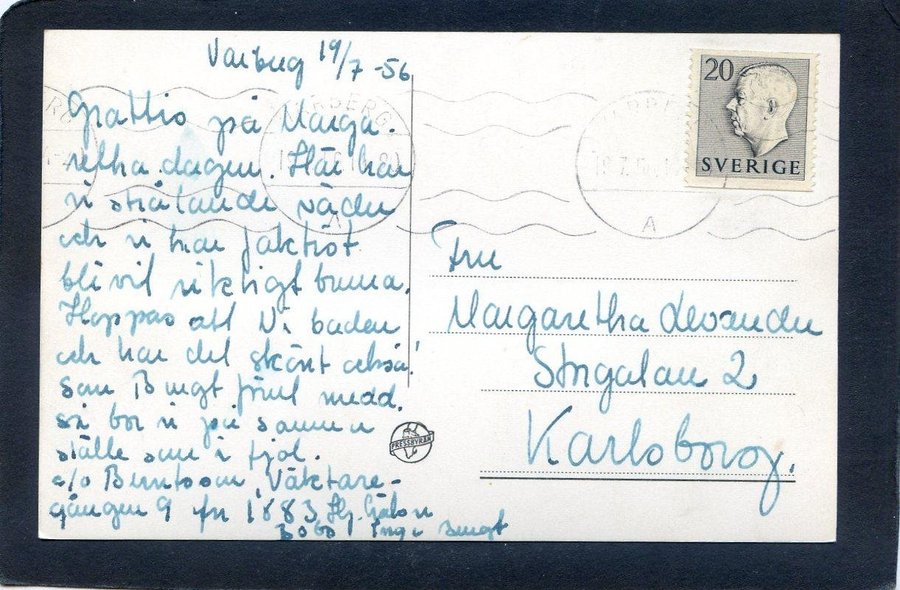 Varberg 19/7-56
Grattis på Marga-
retha dagen. Här har
vi strålande väder
och vi har faktiskt
blivit riktigt bruna.
Hoppas att Ni badar
och har det skönt också!
Som Bengt förut medd.
så bor vi på samma
ställe som i fjol.
c/o Berntsson, Väktare-
gången 9 fr 1883 Hj. hälsn
Inga Bengt
20
SVERIGE
VARBERG
A
PRESSBYRÅN
Fru
Margaretha Levander
Storgatan 2
Karlsborg.